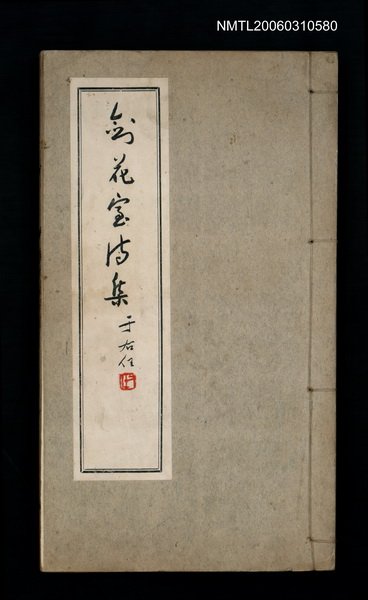 NMTL20060310580
劍花室詩集
于右任